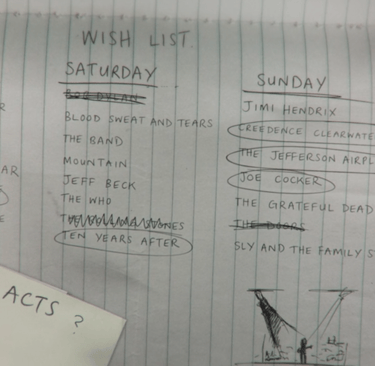 WISH LIST
SATURDAY
BOB DYLAN
BLOOD SWEAT AND TEARS
THE BAND
MOUNTAIN
JEFF BECK
THE WHO
TEN YEARS AFTER
SUNDAY
JIMI HENDRIX
CREEDENCE CLEARWATE
THE JEFFERSON AIRPL
JOE COCKER
THE GRATEFUL DEAD
THE DOORS
SLY AND THE FAMILY S
R
AR
E
ACTS ?